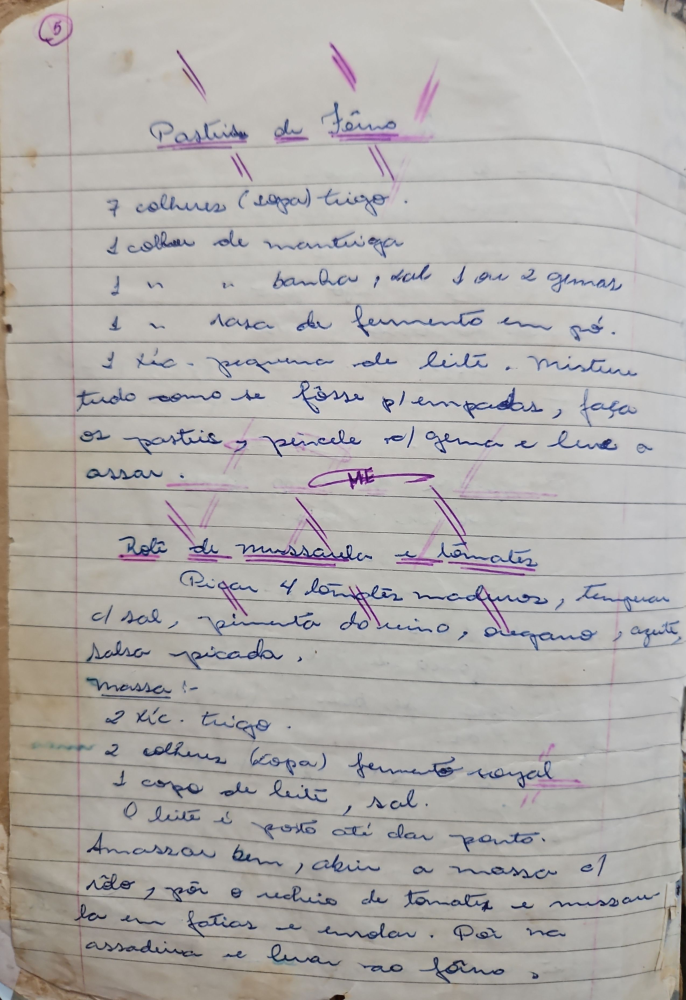 5
Pasteis de Fôrno
7 colheres (sopa) trigo.
1 colher de manteiga
1 " " banha, sal 1 ou 2 gemas
1 " rasa de fermento em pó.
1 xíc. pequena de leite. Misture
tudo como se fôsse p/ empadas, faça
os pasteis, pincele c/ gema e leve a
assar.
ME
Rolê de mussarela e tômates
Picar 4 tômates maduros, temperar
c/ sal, pimenta do reino, oregano, azeite,
salsa picada.
Massa :-
2 xíc. trigo.
2 colheres (sopa) fermento royal
1 copo de leite, sal.
O leite é posto até dar ponto.
Amassar bem, abrir a massa c/
rôlo, pôr o recheio de tomates e mussare-
la em fatias e enrolar. Pôr na
assadeira e levar ao fôrno.